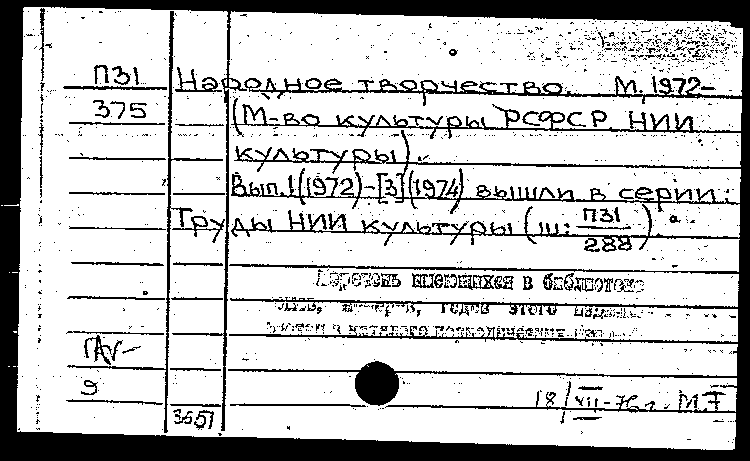 П31 Народное творчество. М, 1972-
375 (М-во культуры РСФСР. НИИ
культуры).
Вып. 1 (1972) - [3] (1974) вышли в серии:
Труды НИИ культуры (ш: П31/288).
Перечень имеющихся в библиотеке
номеров, годов этого издания
в каталоге периодических
9
18/XII-76 г. М.Г
3657